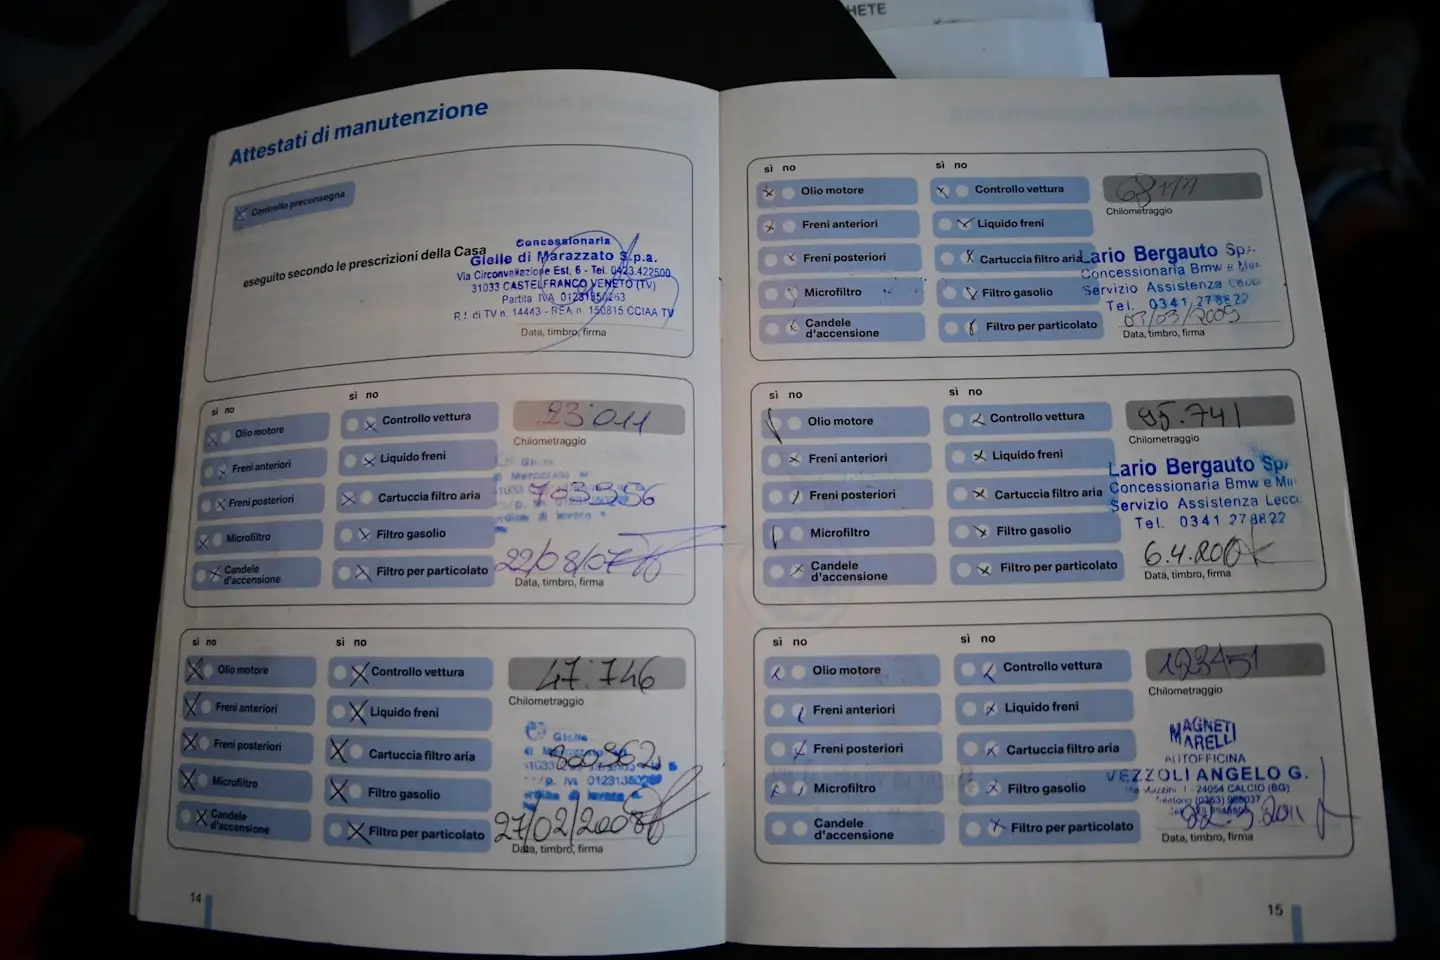 HETE
Attestati di manutenzione
Controllo preconsegna
eseguito secondo le prescrizioni della Casa
Concessionaria
Gielle di Marazzato S.p.a.
Via Circonvallazione Est, 6 - Tel. 0423.422500
31033 CASTELFRANCO VENETO (TV)
Partita IVA
R.I. di TV n. 14443 - REA n. 150815 CCIAA TV
Data, timbro, firma
sì no
Olio motore
Freni anteriori
Freni posteriori
Microfiltro
Candele
d'accensione
sì no
Controllo vettura
Liquido freni
Cartuccia filtro aria
Filtro gasolio
Filtro per particolato
23.011
Chilometraggio
22/08/07
Data, timbro, firma
sì no
Olio motore
Freni anteriori
Freni posteriori
Microfiltro
Candele
d'accensione
sì no
Controllo vettura
Liquido freni
Cartuccia filtro aria
Filtro gasolio
Filtro per particolato
47.746
Chilometraggio
27/02/2008
Data, timbro, firma
14
sì no
Olio motore
Freni anteriori
Freni posteriori
Microfiltro
Candele
d'accensione
sì no
Controllo vettura
Liquido freni
Cartuccia filtro aria
Filtro gasolio
Filtro per particolato
Chilometraggio
Lario Bergauto
Concessionaria Bmw e
Servizio Assistenza
Tel. 0341 278822
Data, timbro, firma
sì no
Olio motore
Freni anteriori
Freni posteriori
Microfiltro
Candele
d'accensione
sì no
Controllo vettura
Liquido freni
Cartuccia filtro aria
Filtro gasolio
Filtro per particolato
95.741
Chilometraggio
Lario Bergauto
Concessionaria Bmw e
Servizio Assistenza
Tel. 0341 278822
Data, timbro, firma
sì no
Olio motore
Freni anteriori
Freni posteriori
Microfiltro
Candele
d'accensione
sì no
Controllo vettura
Liquido freni
Cartuccia filtro aria
Filtro gasolio
Filtro per particolato
123451
Chilometraggio
MAGNETI
MARELLI
AUTOFFICINA
VEZZOLI ANGELO G.
24054 CALCIO (BG)
Data, timbro, firma
15